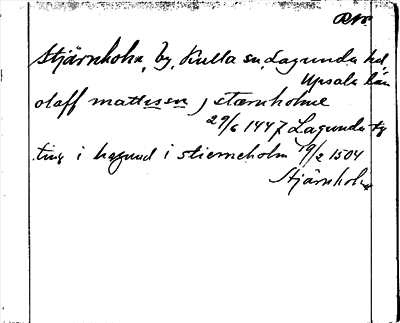 Stjärnholm, by, Kulla sn, Lagunda hd,
Upsala län
olaff mattisson j stærnholme
29/6 1447 Lagunda
ting i hagund i stierneholm 19/2 1504
Stjärnholm